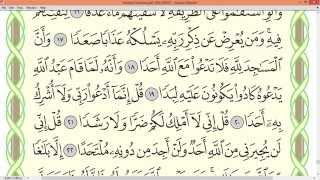 وَأَلَّوِ ٱسْتَقَٰمُوا۟ عَلَى ٱلطَّرِيقَةِ لَأَسْقَيْنَٰهُم مَّآءً غَدَقًا ١٦ لِّنَفْتِنَهُمْ
فِيهِ ۚ وَمَن يُعْرِضْ عَن ذِكْرِ رَبِّهِۦ يَسْلُكْهُ عَذَابًا صَعَدًا ١٧ وَأَنَّ
ٱلْمَسَٰجِدَ لِلَّهِ فَلَا تَدْعُوا۟ مَعَ ٱللَّهِ أَحَدًا ١٨ وَأَنَّهُۥ لَمَّا قَامَ عَبْدُ ٱللَّهِ
يَدْعُوهُ كَادُوا۟ يَكُونُونَ عَلَيْهِ لِبَدًا ١٩ قُلْ إِنَّمَآ أَدْعُوا۟ رَبِّى وَلَآ أُشْرِكُ
بِهِۦٓ أَحَدًا ٢٠ قُلْ إِنِّى لَآ أَمْلِكُ لَكُمْ ضَرًّا وَلَا رَشَدًا ٢١ قُلْ إِنِّى
لَن يُجِيرَنِى مِنَ ٱللَّهِ أَحَدٌ وَلَنْ أَجِدَ مِن دُونِهِۦ مُلْتَحَدًا ٢٢ إِلَّا بَلَٰغًا